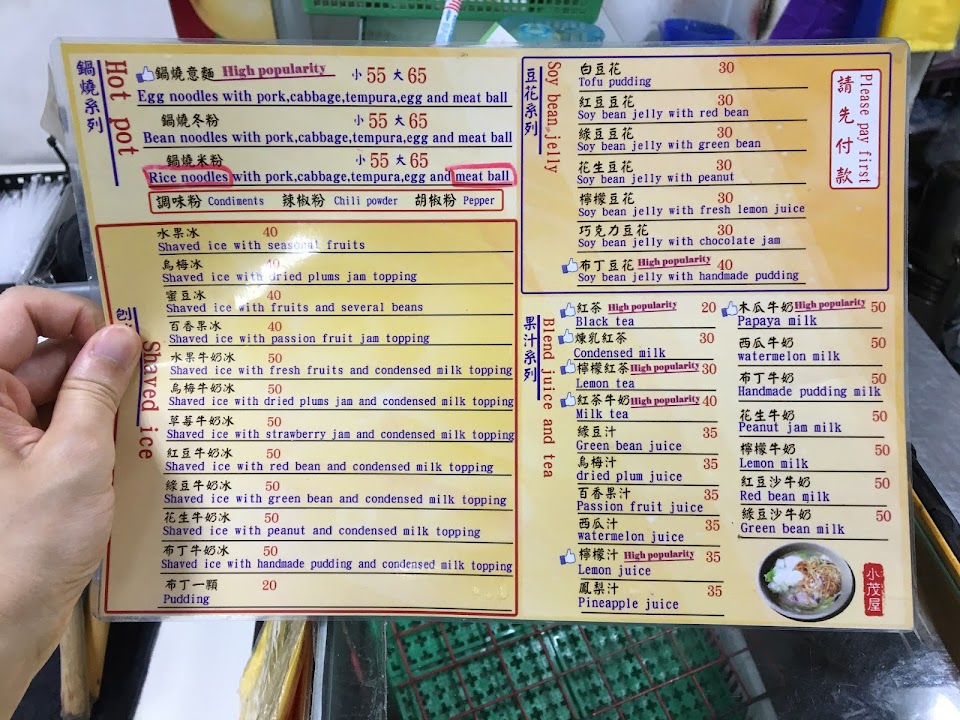 鍋燒系列
Hot pot
鍋燒意麵 High popularity 小 55 大 65
Egg noodles with pork,cabbage,tempura,egg and meat ball
鍋燒冬粉 小 55 大 65
Bean noodles with pork,cabbage,tempura,egg and meat ball
鍋燒米粉 小 55 大 65
Rice noodles with pork,cabbage,tempura,egg and meat ball
調味粉 Condiments 辣椒粉 Chili powder 胡椒粉 Pepper
Shaved ice
水果冰 40
Shaved ice with seasonal fruits
烏梅冰 40
Shaved ice with dried plums jam topping
蜜豆冰 40
Shaved ice with fruits and several beans
百香果冰 40
Shaved ice with passion fruit jam topping
水果牛奶冰 50
Shaved ice with fresh fruits and condensed milk topping
烏梅牛奶冰 50
Shaved ice with dried plums jam and condensed milk topping
草莓牛奶冰 50
Shaved ice with strawberry jam and condensed milk topping
紅豆牛奶冰 50
Shaved ice with red bean and condensed milk topping
綠豆牛奶冰 50
Shaved ice with green bean and condensed milk topping
花生牛奶冰 50
Shaved ice with peanut and condensed milk topping
布丁牛奶冰 50
Shaved ice with handmade pudding and condensed milk topping
布丁一顆 20
Pudding
豆花系列
Soy bean jelly
白豆花 30
Tofu pudding
紅豆豆花 30
Soy bean jelly with red bean
綠豆豆花 30
Soy bean jelly with green bean
花生豆花 30
Soy bean jelly with peanut
檸檬豆花 30
Soy bean jelly with fresh lemon juice
巧克力豆花 30
Soy bean jelly with chocolate jam
布丁豆花 High popularity 40
Soy bean jelly with handmade pudding
Please pay first
請先付款
果汁系列
Blend juice and tea
紅茶 High popularity 20
Black tea
煉乳紅茶 30
Condensed milk
檸檬紅茶 High popularity 30
Lemon tea
紅茶牛奶 High popularity 40
Milk tea
綠豆汁 35
Green bean juice
烏梅汁 35
dried plum juice
百香果汁 35
Passion fruit juice
西瓜汁 35
watermelon juice
檸檬汁 High popularity 35
Lemon juice
鳳梨汁 35
Pineapple juice
木瓜牛奶 High popularity 50
Papaya milk
西瓜牛奶 50
watermelon milk
布丁牛奶 50
Handmade pudding milk
花生牛奶 50
Peanut jam milk
檸檬牛奶 50
Lemon milk
紅豆沙牛奶 50
Red bean milk
綠豆沙牛奶 50
Green bean milk
小茂屋